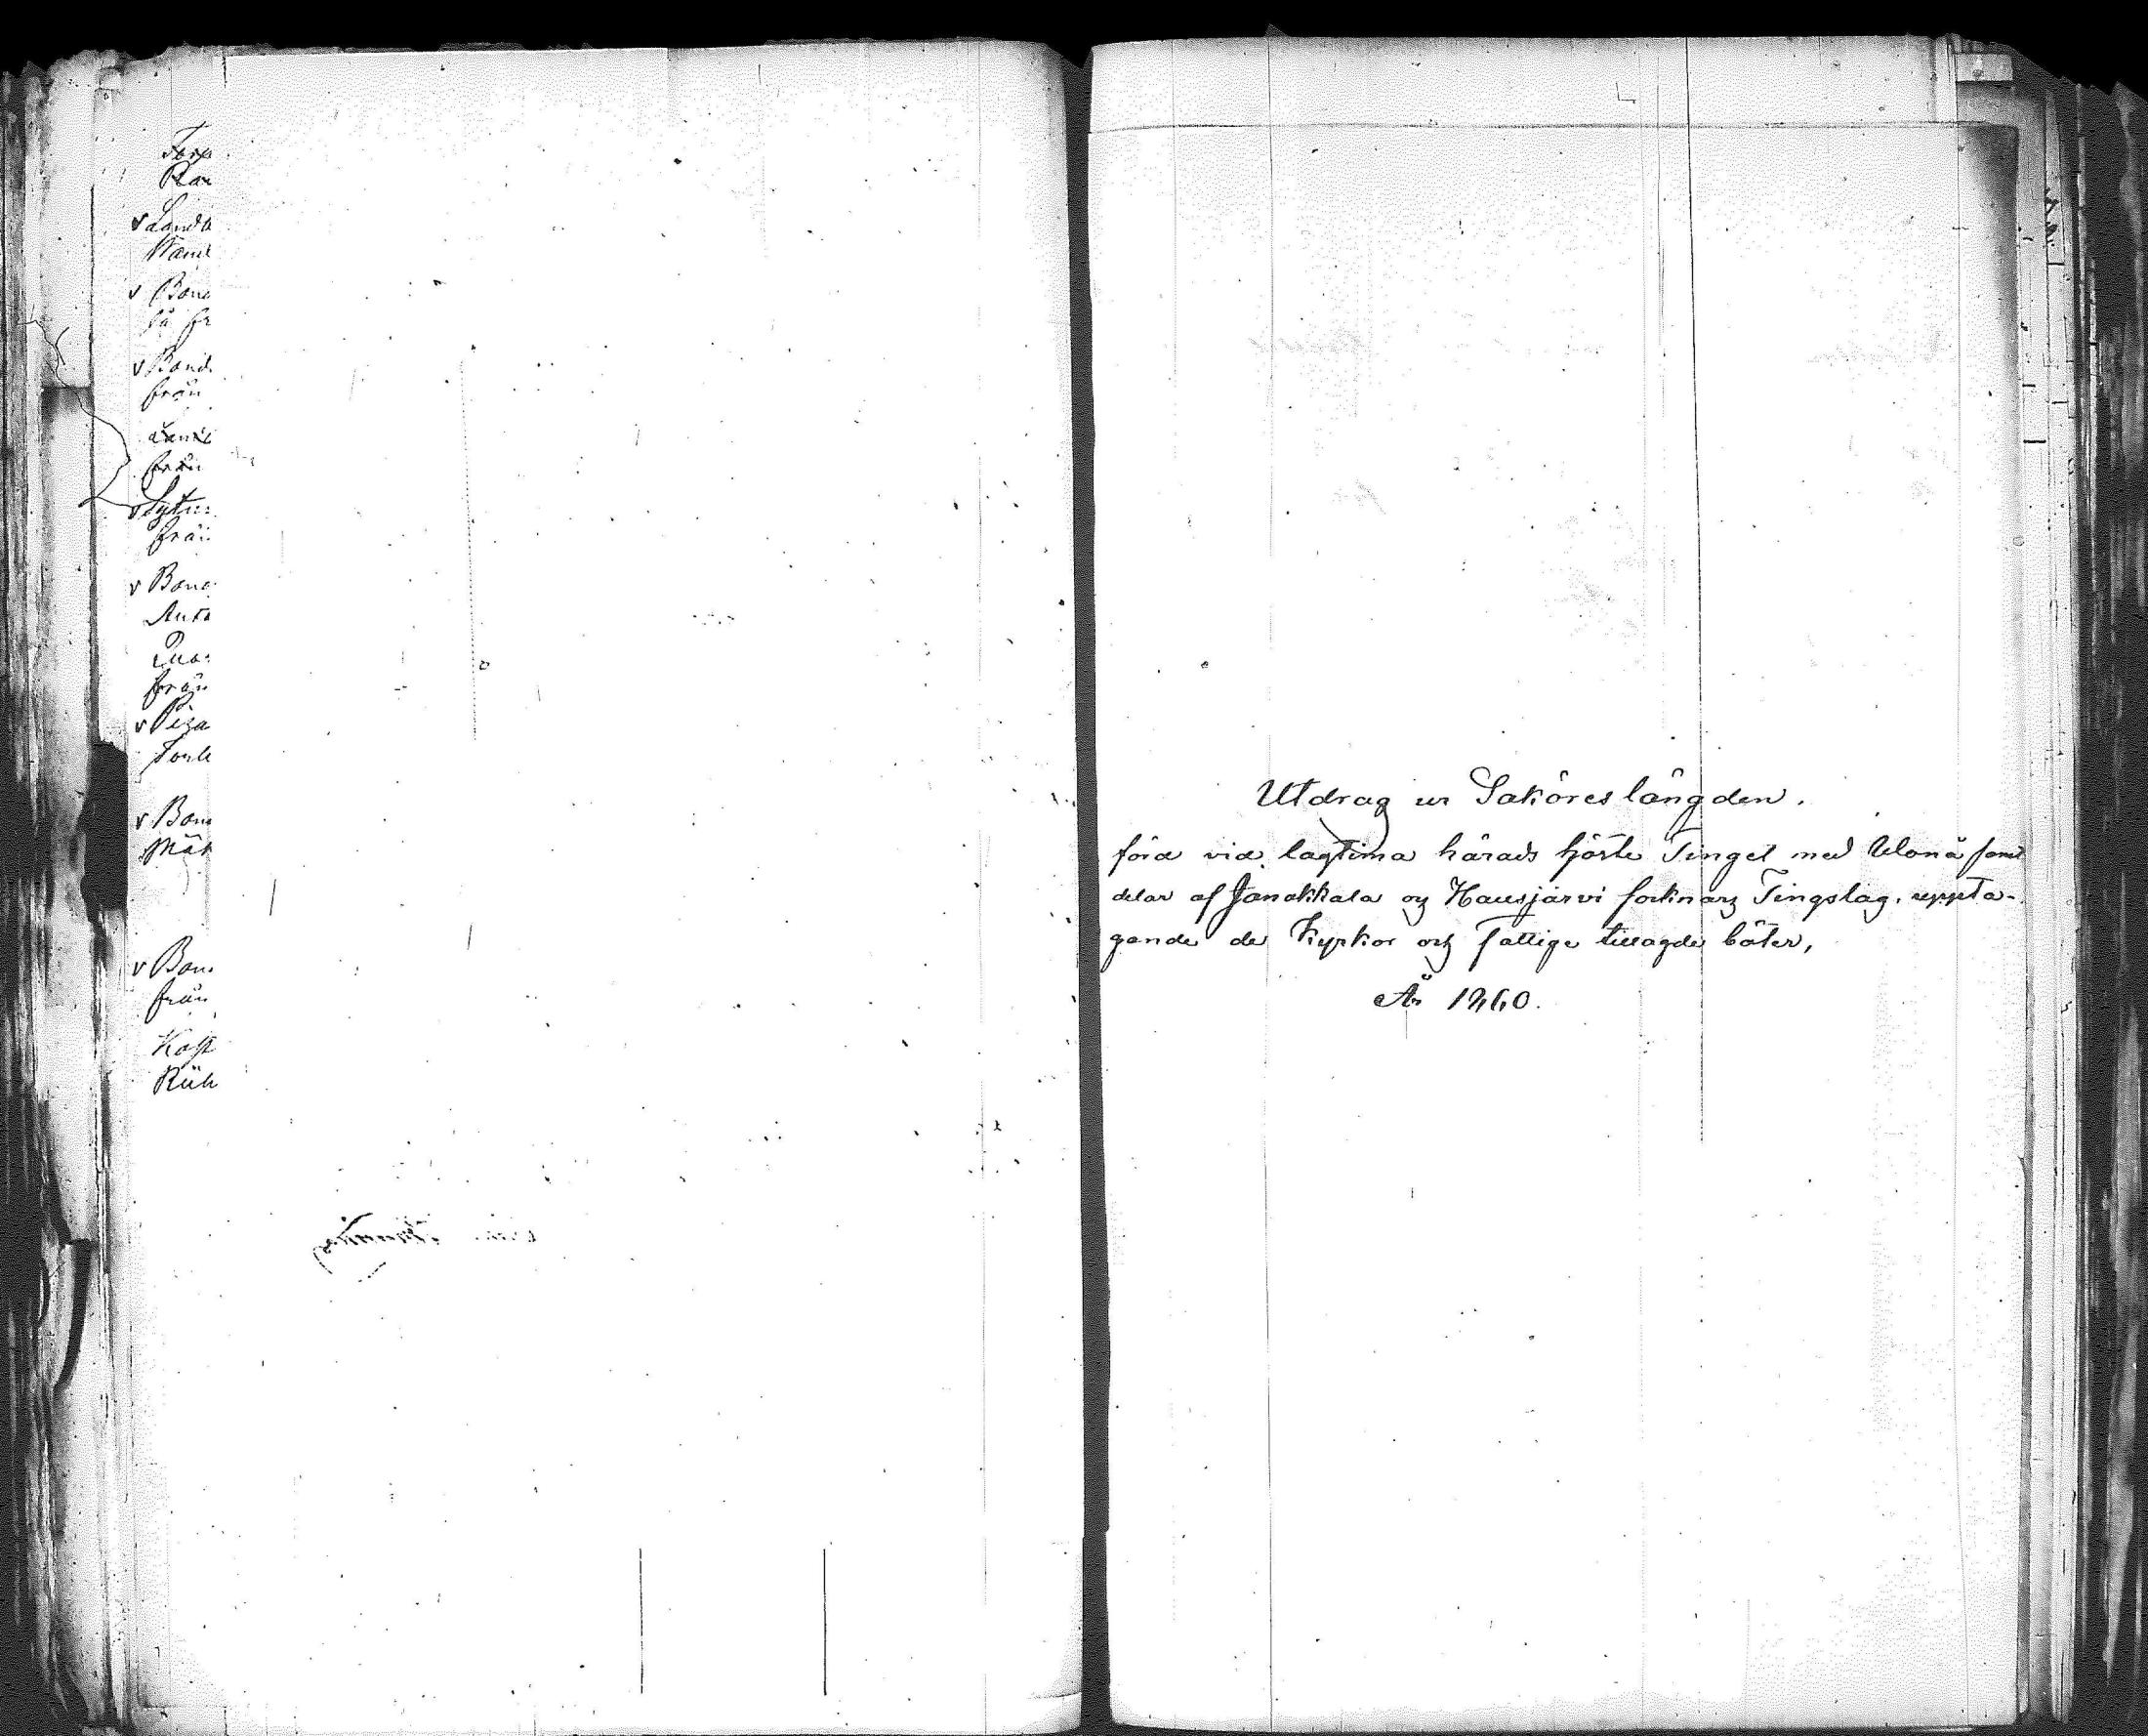 Torp
Ran
v Landb
v Bond
så fr
v Bond
från
från
v Lytni
från
v Bond
Anto
från
v Piga
v Bond
Mäk
v Bon
från
Riih
Utdrag ur Saköreslängden.
förd vid lagtima härads höste Tinget med samt
delar af Janakkala och Hausjärvi socknars Tingslag, uppta-
gande de Kyrkor och Fattige tillagde böter,
År 1860.